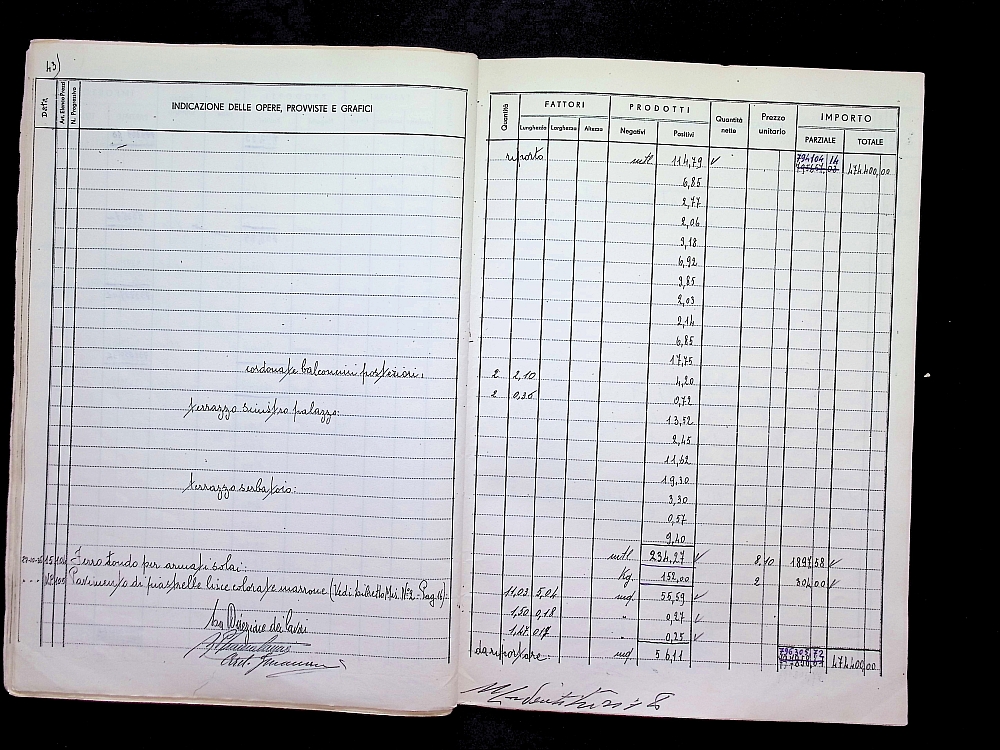 43)
Data
Art. Elenco Prezzi
N. Progressivo
INDICAZIONE DELLE OPERE, PROVVISTE E GRAFICI
cordonate balconcini posteriori:
terrazzo sinistro palazzo:
terrazzo serbatoio:
15 104 Ferro tondo per armati solai:
105 Pavimento di piastrelle lisce colorate marrone (Vedi Libretto Mis. N°2 - Pag. 16):
La Direzione dei Lavori
Quantità
FATTORI
PRODOTTI
Quantità nette
Prezzo unitario
IMPORTO
Lunghezza Larghezza Altezza
Negativi Positivi
PARZIALE TOTALE
riporto mtl 114,79 794104 14 474.400,00
6,85
2,77
2,06
3,18
6,92
3,85
2,03
2,14
6,85
17,75
2 2,10 4,20
2 0,36 0,72
13,52
2,45
11,62
19,30
3,30
0,57
9,40
mtl 234,27 8,10 1897,58
Kg. 152,00 2 304,00
11,03 5,04 mq. 55,59
1,50 0,18 " 0,27
1,47 0,17 " 0,25
da riportare: mq 56,11 796305 72 474.400,00